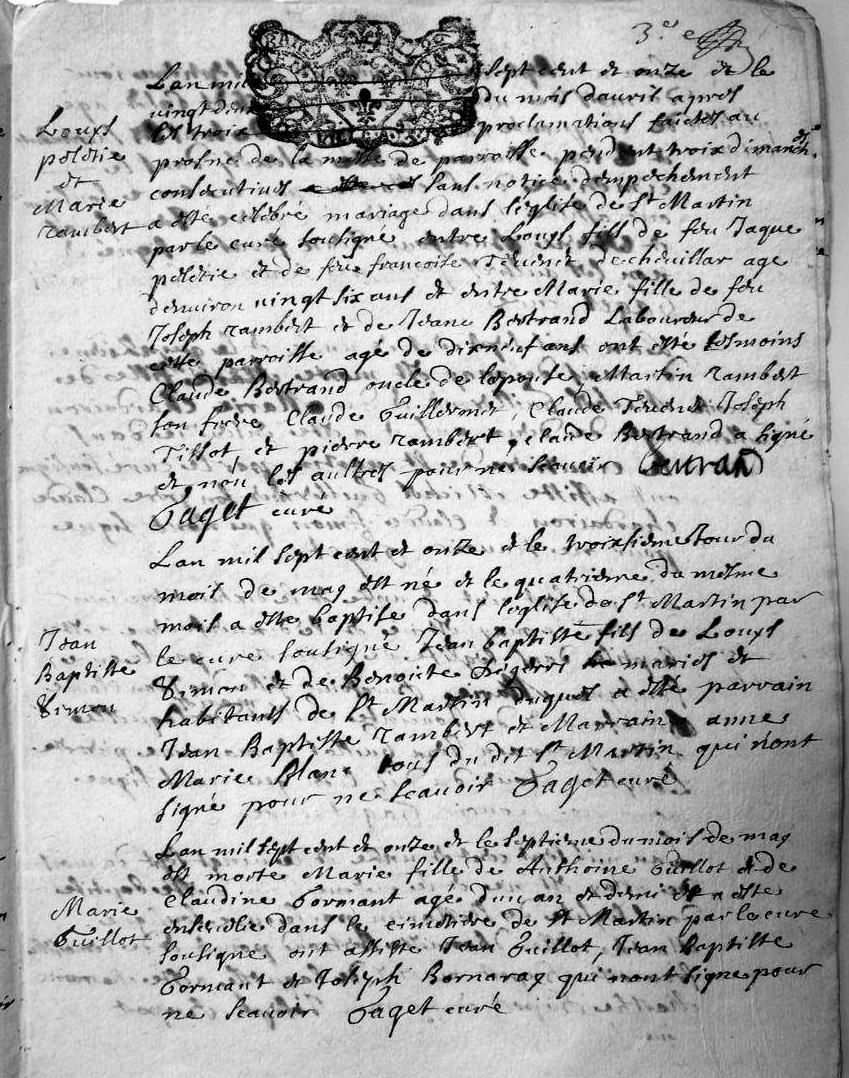 3.e
Lan mil sept cent et onze et le
vingt deux du mois dauril apres
les trois proclamations faictes au
Louys
peletie
et
Marie
rambert
prosne de la messe de parroisse pendant trois dimanches
consecutives sans notice dempechement
a este celebré mariage dans leglise de St Martin
par le curé soussigné entre Louys fils de feu Jaque
peletie et de feu francoise Tevenet de cheuillar age
denuiron vingt six ans et entre Marie fille de feu
Joseph rambert et de Jeane Bertrand Laboureur de
cette parroisse agé de dixneuf ans ont este tesmoins
Claude Bertrand oncle de lepouse, Martin rambert
son frere Claude Guillermet, Claude Tevenet Joseph
Tissot, et pierre rambert, claude Bertrand a signé
et non les aultres pour ne scavoir Bertrand
Gaget curé
Lan mil sept cent et onze et le troixsieme Jour du
mois de may est né et le quatrieme du mesme
mois a este baptise dans leglise de St Martin par
Jean
Baptiste
Simon
le cure soussigné Jean baptiste fils de Louys
Simon et de Benoite maries et
habitants de St Martin duquel a esté parrain
Jean Baptiste rambert et Marraine anne
Marie Blanc tous du dit St Martin qui n'ont
signé pour ne scavoir Gaget curé
Lan mil sept cent et onze et le septieme du mois de may
est morte Marie fille de Anthoine Guillot et de
Marie
Guillot
Claudine Gormant agé dun an et demi et a este
enseuelie dans le cimetiere de St Martin par le cure
soussigne ont assiste Jean Guillot, Jean Baptiste
Gormant et Joseph Bornaray qui nont signe pour
ne scavoir Gaget curé